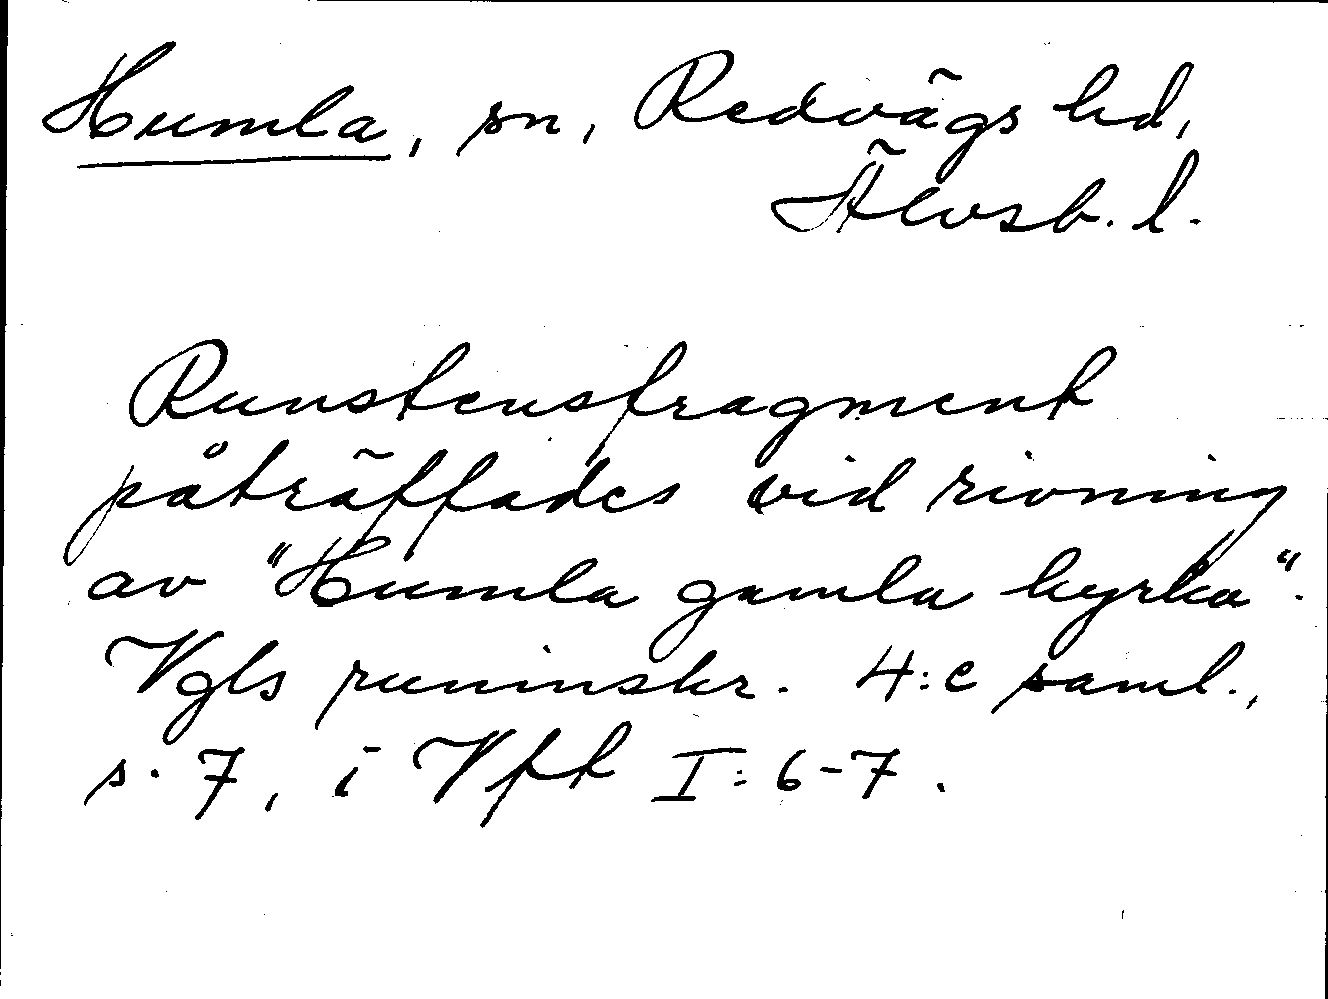 Humla, sn, Redvägs hd,
Älvsb. l.
Runstensfragment
påträffades vid rivning
av "Humla gamla kyrka".
Vgls runinskr. 4:e saml.,
s. 7, i Vft I:6-7.